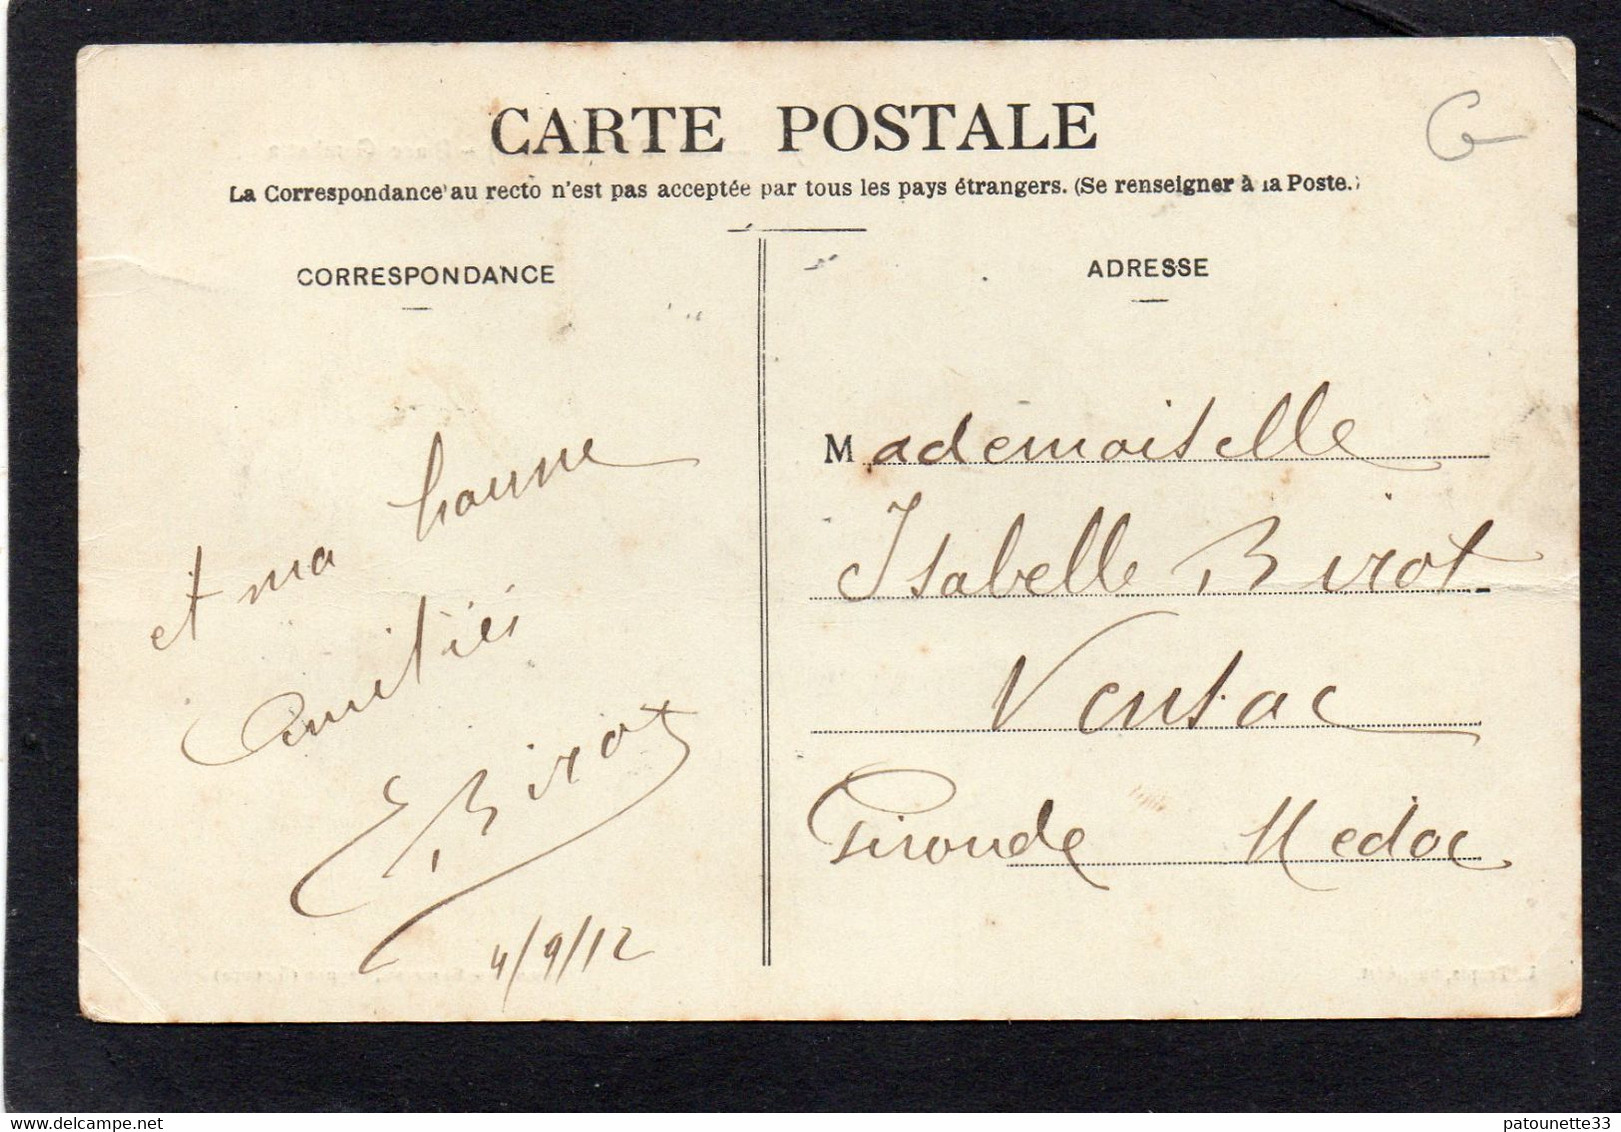 CARTE POSTALE
La Correspondance au recto n'est pas acceptée par tous les pays étrangers. (Se renseigner à la Poste.)
CORRESPONDANCE
et ma bonne
amitiés
EBirot
4/9/12
ADRESSE
Mademoiselle
Isabelle Birot
Vensac
Gironde Medoc
patounette33